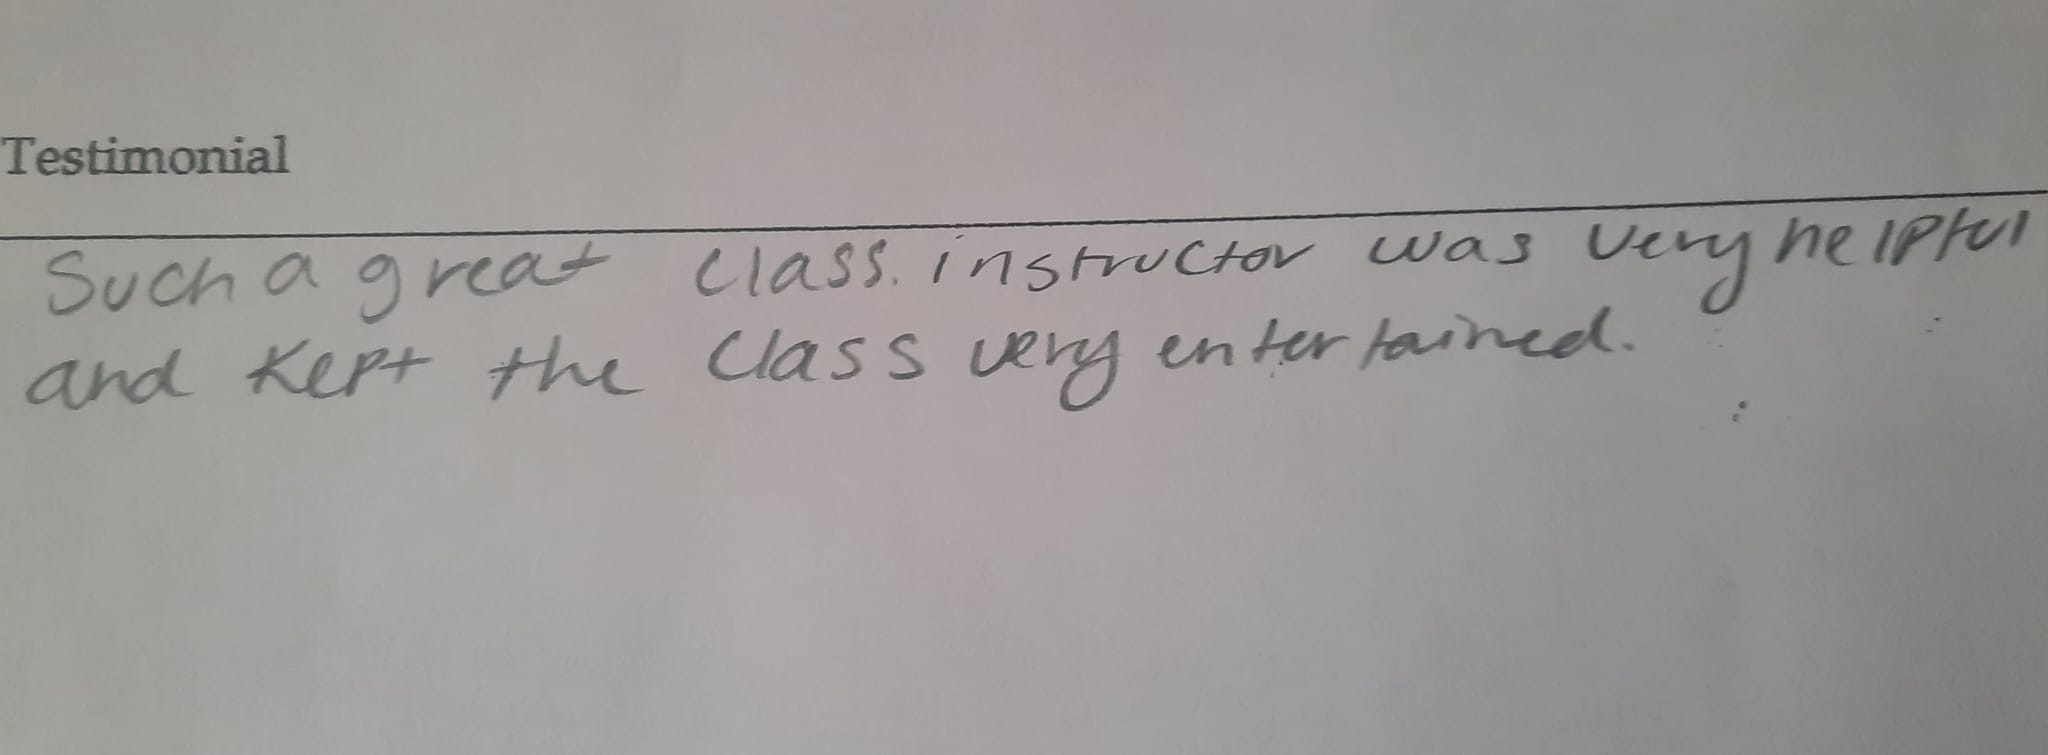 Testimonial
Such a great class. instructor was very helpful
and kept the class very entertained.